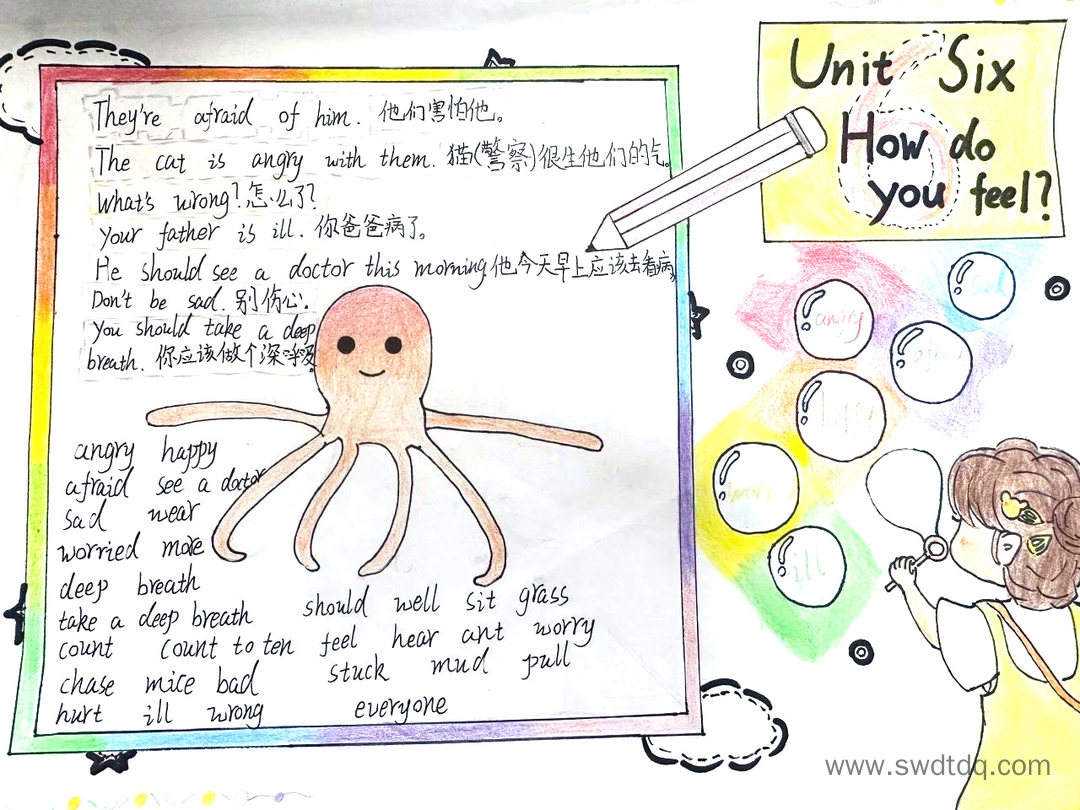 Unit Six
How do
you feel?
They're afraid of him. 他们害怕他。
The cat is angry with them. 猫(警察)很生他们的气。
What's wrong? 怎么了?
Your father is ill. 你爸爸病了。
He should see a doctor this morning 他今天早上应该去看病。
Don't be sad. 别伤心.
You should take a deep
breath. 你应该做个深呼吸。
angry happy
afraid see a doctor
sad wear
worried more
deep breath
take a deep breath
count count to ten
chase mice bad
hurt ill wrong
should well sit grass
feel hear ant worry
stuck mud pull
everyone
sad
angry
ill
www.swdtdq.com